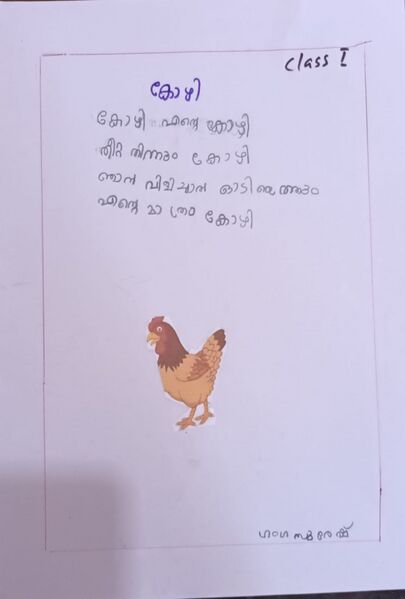 class I
കോഴി
കോഴി എന്റെ കോഴി
തീറ്റ തിന്നും കോഴി
ഞാൻ വിളിച്ചാൽ ഓടിയെത്തും
എന്റെ മാത്രം കോഴി
ഗംഗ സുരേഷ്